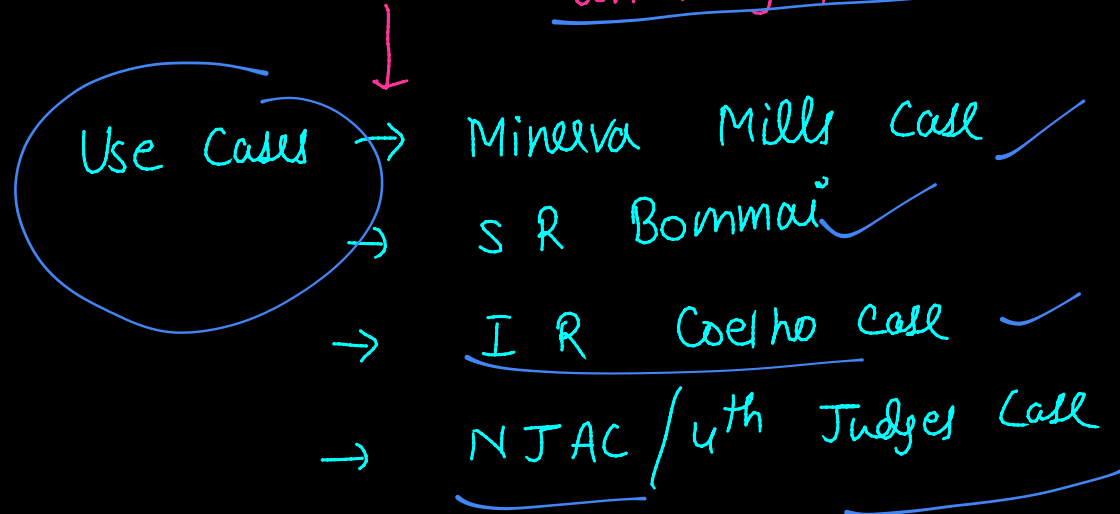 Use Cases → Minerva Mills Case
→ S R Bommai
→ I R Coelho Case
→ NJAC / 4th Judges Case